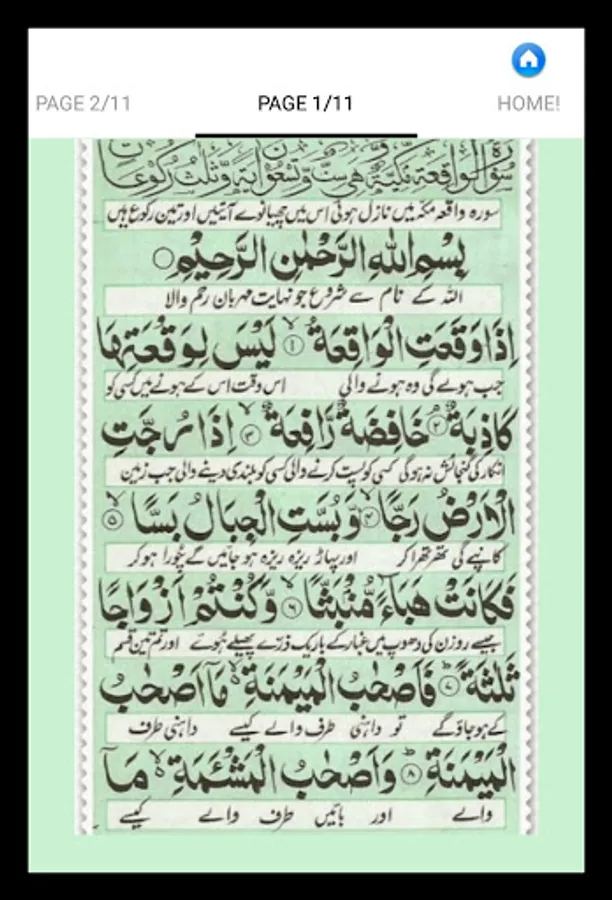 PAGE 2/11 PAGE 1/11 HOME!
سورة الواقعة مكية هي ست و تسعون اية و ثلث ركوعا
سورہ واقعہ مکہ میں نازل ہوئی اس میں چھیانوے آیتیں اور تین رکوع ہیں
بِسْمِ اللّٰهِ الرَّحْمٰنِ الرَّحِيْمِ ○
اللہ کے نام سے شروع جو نہایت مہربان رحم والا
اِذَا وَقَعَتِ الْوَاقِعَةُ ۙ﴿۱﴾ لَيْسَ لِوَقْعَتِهَا
جب ہولے گی وہ ہونے والی اس وقت اس کے ہونے میں کسی کو
كَاذِبَةٌ ۘ﴿۲﴾ خَافِضَةٌ رَّافِعَةٌ ۙ﴿۳﴾ اِذَا رُجَّتِ
انکار کی گنجائش نہ ہوگی کسی کو پست کرنے والی کسی کو بلندی دینے والی جب زمین
الْاَرْضُ رَجًّا ۙ﴿۴﴾ وَّ بُسَّتِ الْجِبَالُ بَسًّا ۙ﴿۵﴾
کانپے گی تھرتھرا کر اور پہاڑ ریزہ ریزہ ہو جائیں گے چورا ہو کر
فَكَانَتْ هَبَآءً مُّنْۢبَثًّا ۙ﴿۶﴾ وَّ كُنْتُمْ اَزْوَاجًا
جیسے روزن کی دھوپ میں غبار کے باریک ذرے پھیلے ہوئے اور تم تین قسم
ثَلٰثَةً ؕ﴿۷﴾ فَاَصْحٰبُ الْمَيْمَنَةِ ۙ مَاۤ اَصْحٰبُ
کے ہو جاؤ گے تو داہنی طرف والے کیسے داہنی طرف
الْمَيْمَنَةِ ؕ﴿۸﴾ وَ اَصْحٰبُ الْمَشْـَٔمَةِ ۙ مَاۤ
والے اور بائیں طرف والے کیسے